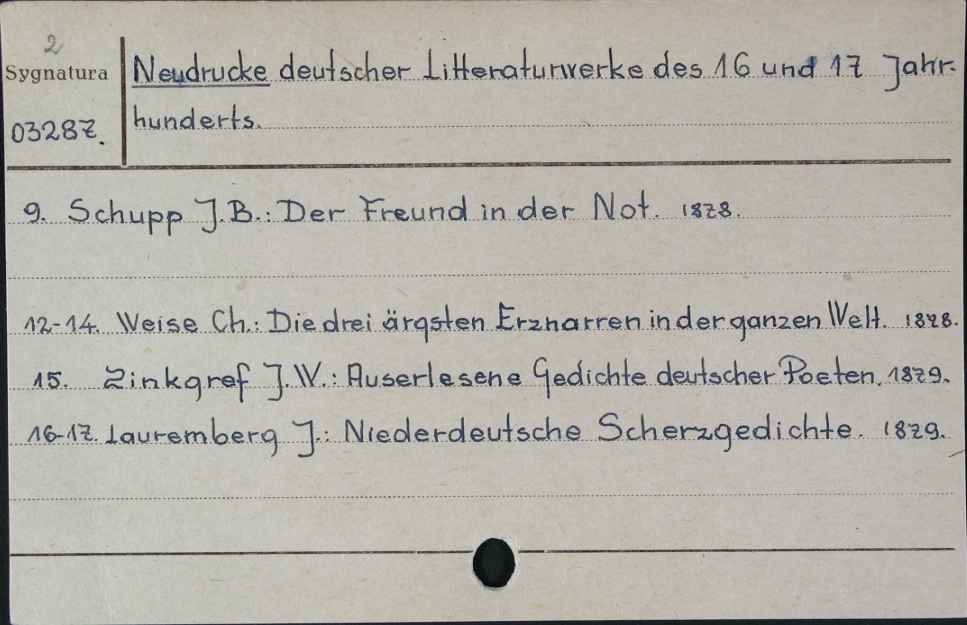 2
Sygnatura
03287.
Neudrucke deutscher Litteraturwerke des 16 und 17 Jahr-
hunderts.
9. Schupp J.B.: Der Freund in der Not. 1878.
12-14. Weise Ch.: Die drei ärgsten Erznarren in der ganzen Welt. 1878.
15. Zinkgref J.W.: Auserlesene Gedichte deutscher Poeten. 1879.
16-17. Lauremberg J.: Niederdeutsche Scherzgedichte. 1879.